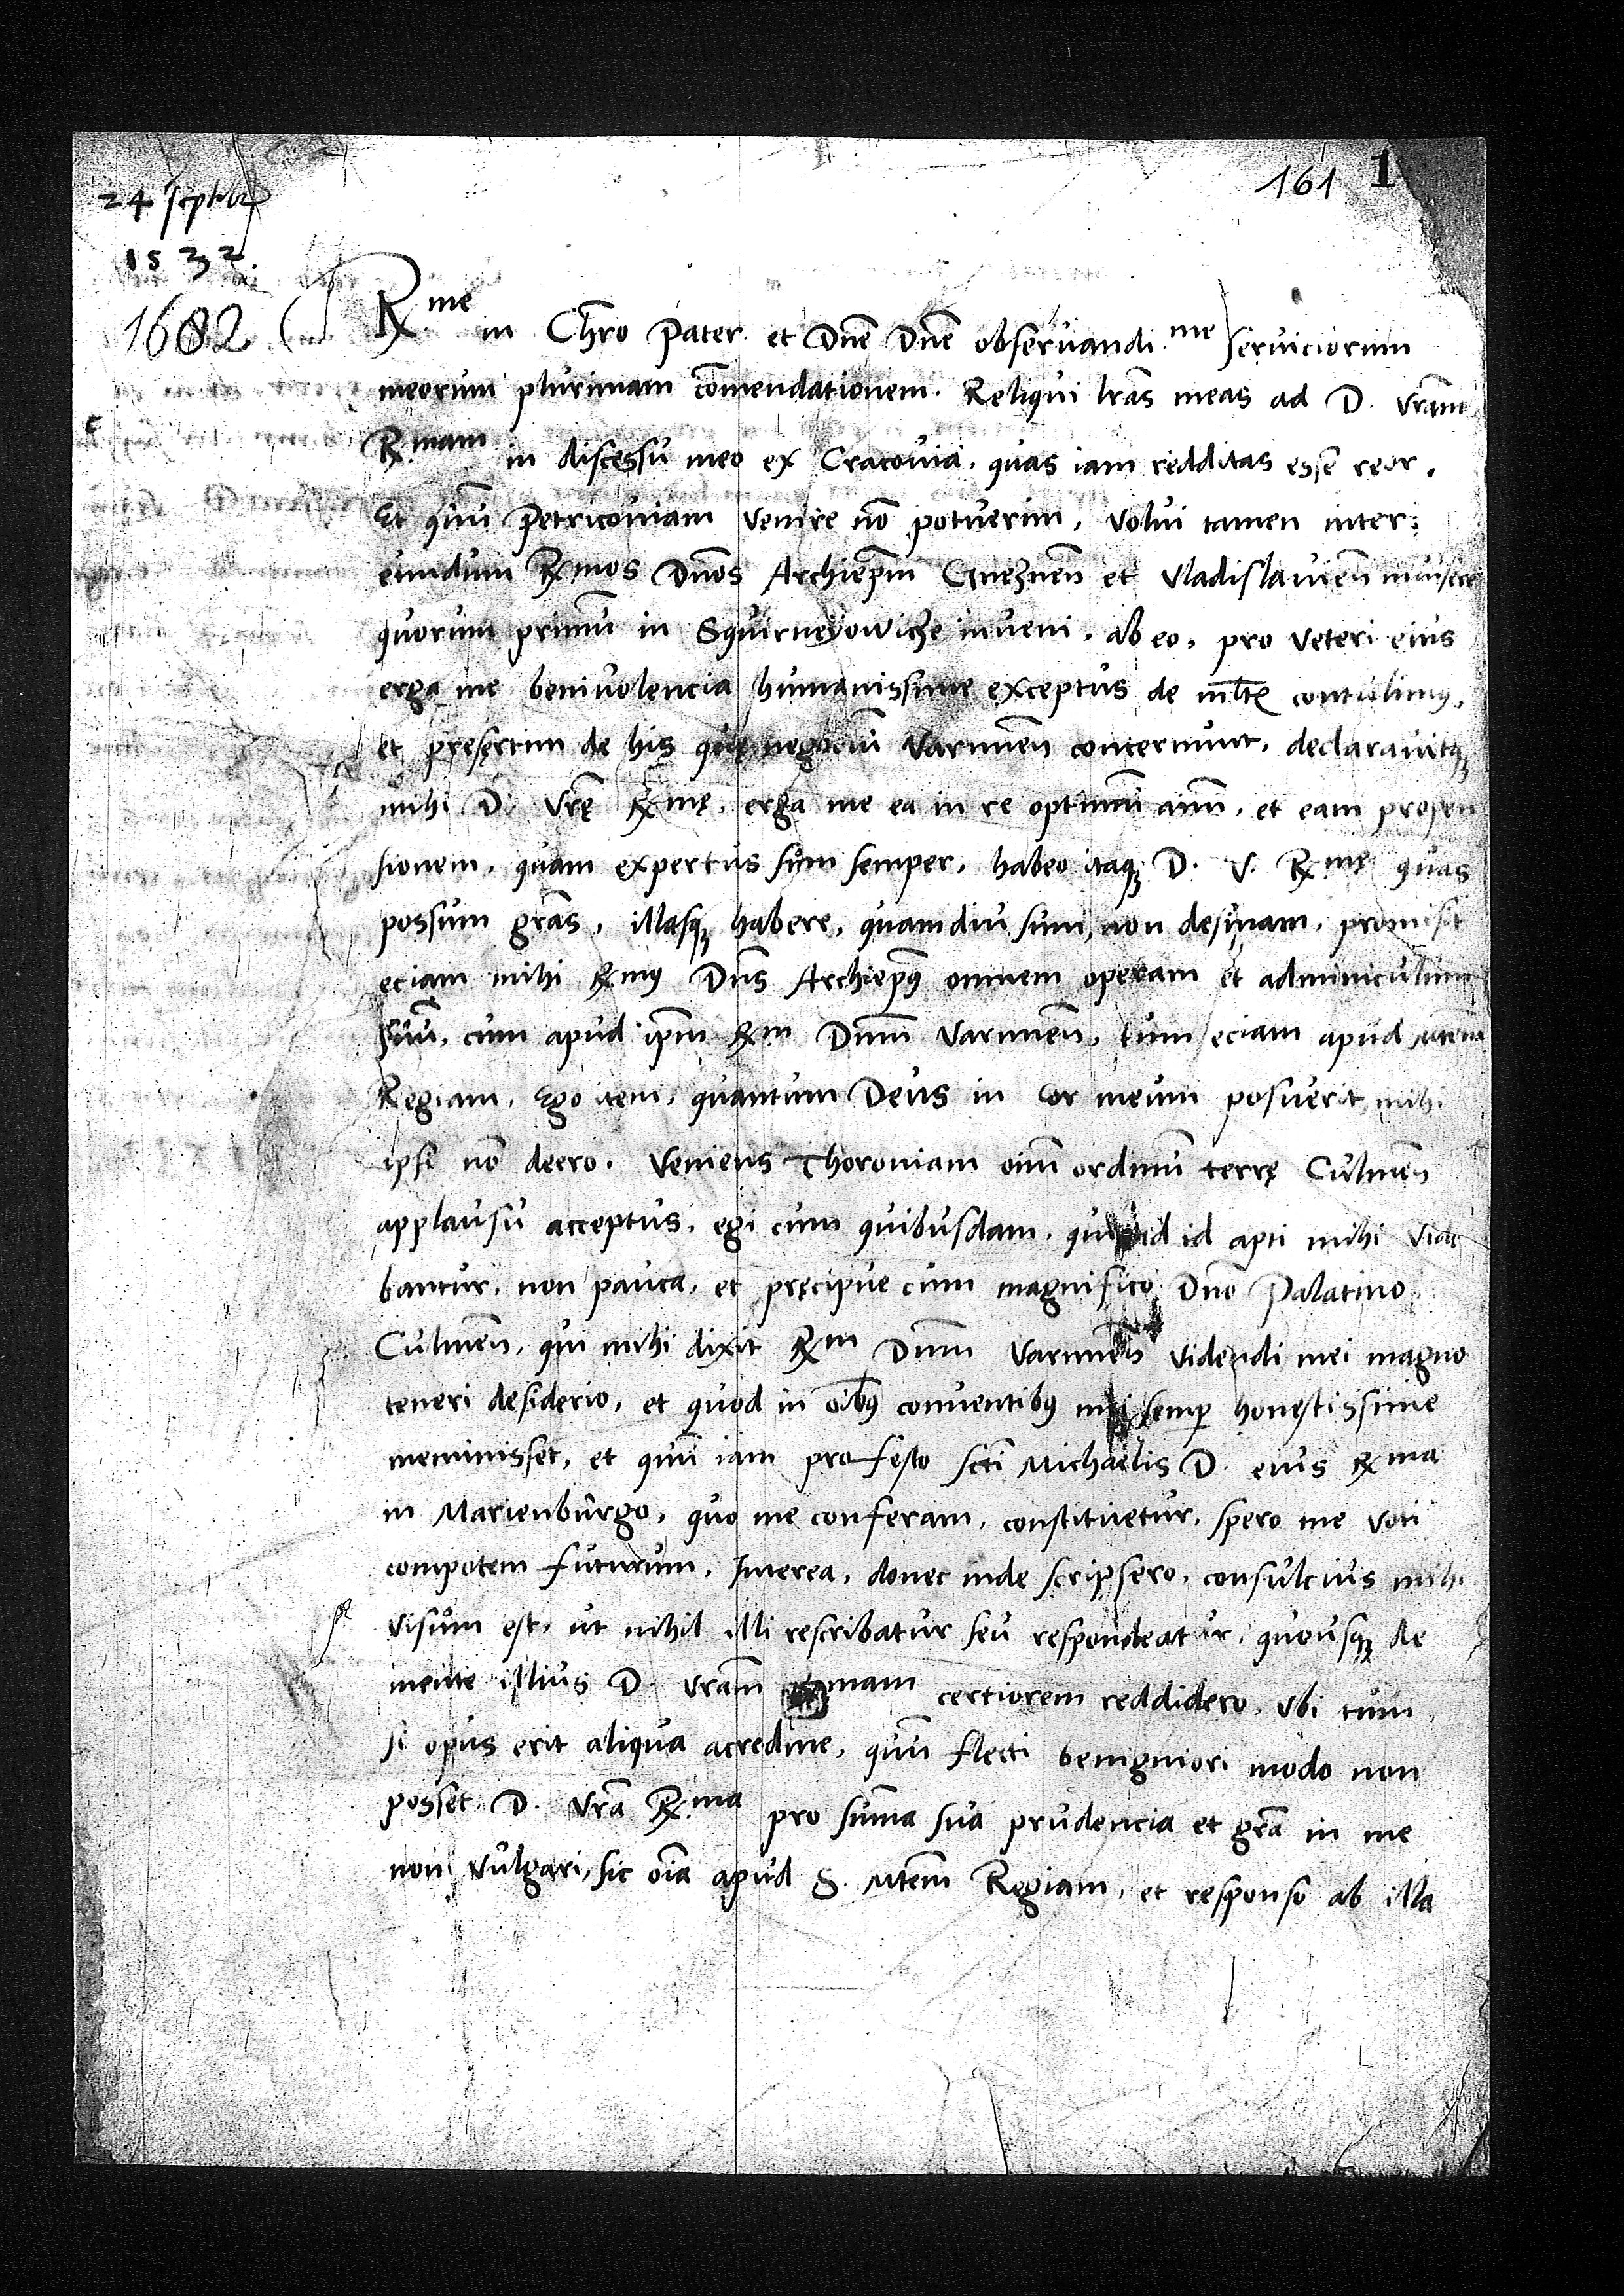 161 1
24 septembr
1532.
1682
R.me in Chr̄o pater et Dn̄e Dn̄e obseruandi.me seruiciorum
meorum plurimam com̄endationem. Reliqui lr̄as meas ad D. vr̄am
R.mam in discessu meo ex Cracouia, quas iam redditas esse reor.
Et qūu Petricouiam venire nō potuerim, volui tamen inter
eundum R.mos Dn̄os Archiep̄m Gneznen̄ et Vladislauien̄ inuisere
quorum primū in Squirneyowicze inueni, ab eo, pro veteri eius
erga me beniuolencia humanissime exceptus de ml̄tꝭ contulimꝰ,
et presertim de his quę negociū Varmien̄ concernunt, declarauitqꝫ
mihi D. vrę̄ R.mę, erga me ea in re optimū anm̄, et eam propen
sionem, quam expertus sum semper, habeo itaqꝫ D. V. R.mę quas
possum gr̄as, illasqꝫ habere, quamdiu sum, non desinam, promisit
eciam mihi R.mꝰ Dn̄s Archiep̄ꝰ omnem operam et adminiculum
suū, cum apud ip̄m R.m Dn̄m Varmien̄, tum eciam apud Mtem̄
Regiam, Ego item, quantum Deus in cor meum posuerit, mihi
ipsi nō deero. Veniens Thoroniam oīm ordinū terrę Culmen̄
applausu acceptus, egi cum quibusdam, qui ad id apti mihi vide
bantur, non pauca, et pręcipue cum magnifico Dn̄o Palatino
Culmen̄, qui mihi dixit R.m Dn̄m Varmien̄ videndi mei magno
teneri desiderio, et quod in oībꝰ conuentibꝰ mei semꝑ honestissime
meminisset, et qūu iam pro festo sct̄i Michaelis D. eius R.ma
in Marienburgo, quo me conferam, constituetur, spero me voti
compotem futurum. Interea, donec inde scripsero, consulcius mihi
visum est, ut nihil illi rescribatur seu respondeatur, quousqꝫ de
mente illius D. vr̄am R.mam certiorem reddidero, vbi tum
si opus erit aliqua acredine, qūu flecti benigniori modo non
posset D. vr̄a R.ma pro sum̄a sua prudencia et gr̄a in me
non vulgari, sic oīa apud S. Mtem̄ Regiam, et responso ab illa